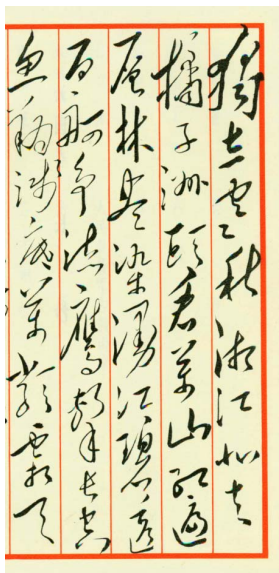 獨立寒秋湘江北去
橘子洲頭看萬山紅遍
層林盡染漫江碧透
百舸爭流鷹擊長空
魚翔淺底萬類霜天